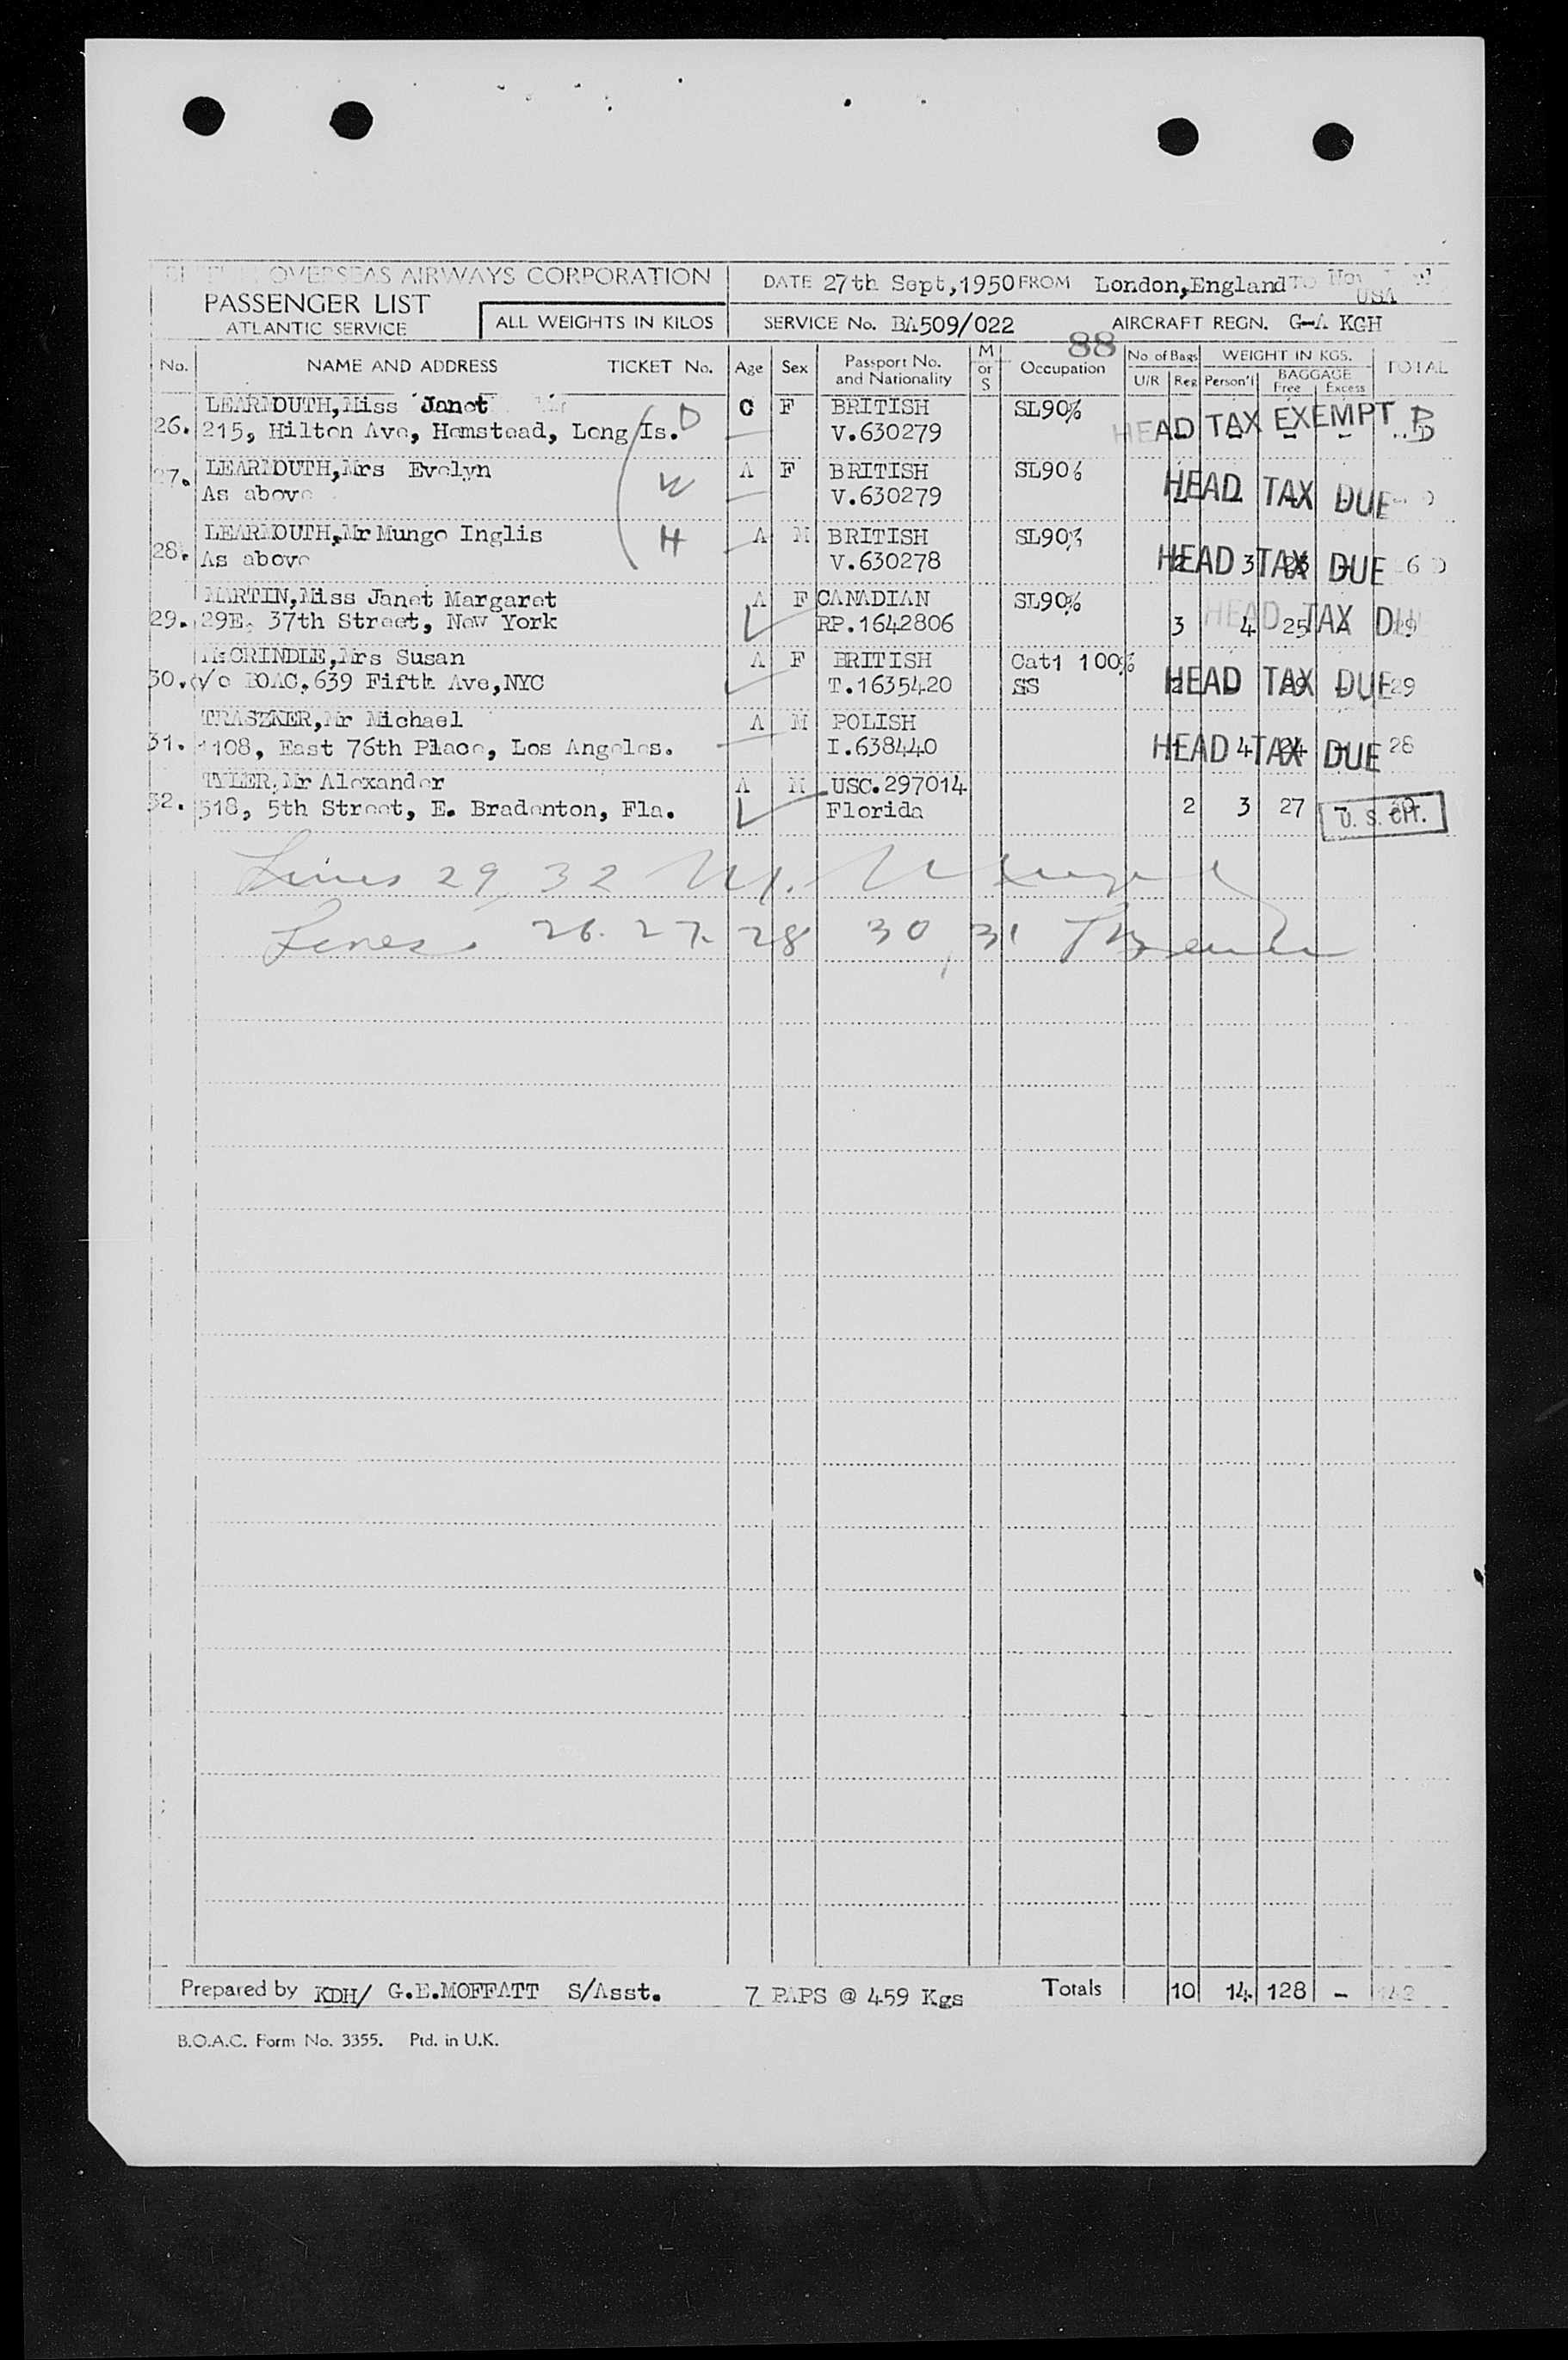 OVERSEAS AIRWAYS CORPORATION
PASSENGER LIST
ATLANTIC SERVICE
ALL WEIGHTS IN KILOS
DATE 27th Sept,1950 FROM London,England TO
USA
SERVICE No. BA509/022 AIRCRAFT REGN. G-A KGH
88
No. NAME AND ADDRESS TICKET No. Age Sex Passport No. and Nationality M or S Occupation No. of Bags U/R Reg WEIGHT IN KGS. Person'l BAGGAGE Free Excess TOTAL
LEARMOUTH,Miss Janet C F BRITISH SL90%
26. 215, Hilton Ave, Hemstead, Long Is. D V.630279 HEAD TAX EXEMPT
27. LEARMOUTH,Mrs Evelyn A F BRITISH SL90%
As above W V.630279 HEAD TAX DUE
LEARMOUTH,Mr Mungo Inglis A M BRITISH SL90%
28. As above H V.630278 2 3 HEAD TAX DUE
MARTIN,Miss Janet Margaret A F CANADIAN SL90%
29. 29E. 37th Street, New York RP.1642806 3 4 25 - 29 HEAD TAX DUE
McCRINDLE,Mrs Susan A F BRITISH Cat1 100%
30. c/o BOAC.639 Fifth Ave,NYC T.1635420 SS 2 - 29 - 29 HEAD TAX DUE
TRASZKER,Mr Michael A M POLISH
31. 1108, East 76th Place, Los Angeles. I.638440 1 4 24 - 28 HEAD TAX DUE
TYLER,Mr Alexander A M USC.297014
32. 518, 5th Street, E. Bradenton, Fla. Florida 2 3 27 U. S. CIT.
Lines 29, 32
Lines 26. 27. 28 30, 31
Prepared by KDH/ G.E.MOFFATT S/Asst. 7 PAPS @ 459 Kgs Totals 10 14 128 - 142
B.O.A.C. Form No. 3355. Ptd. in U.K.